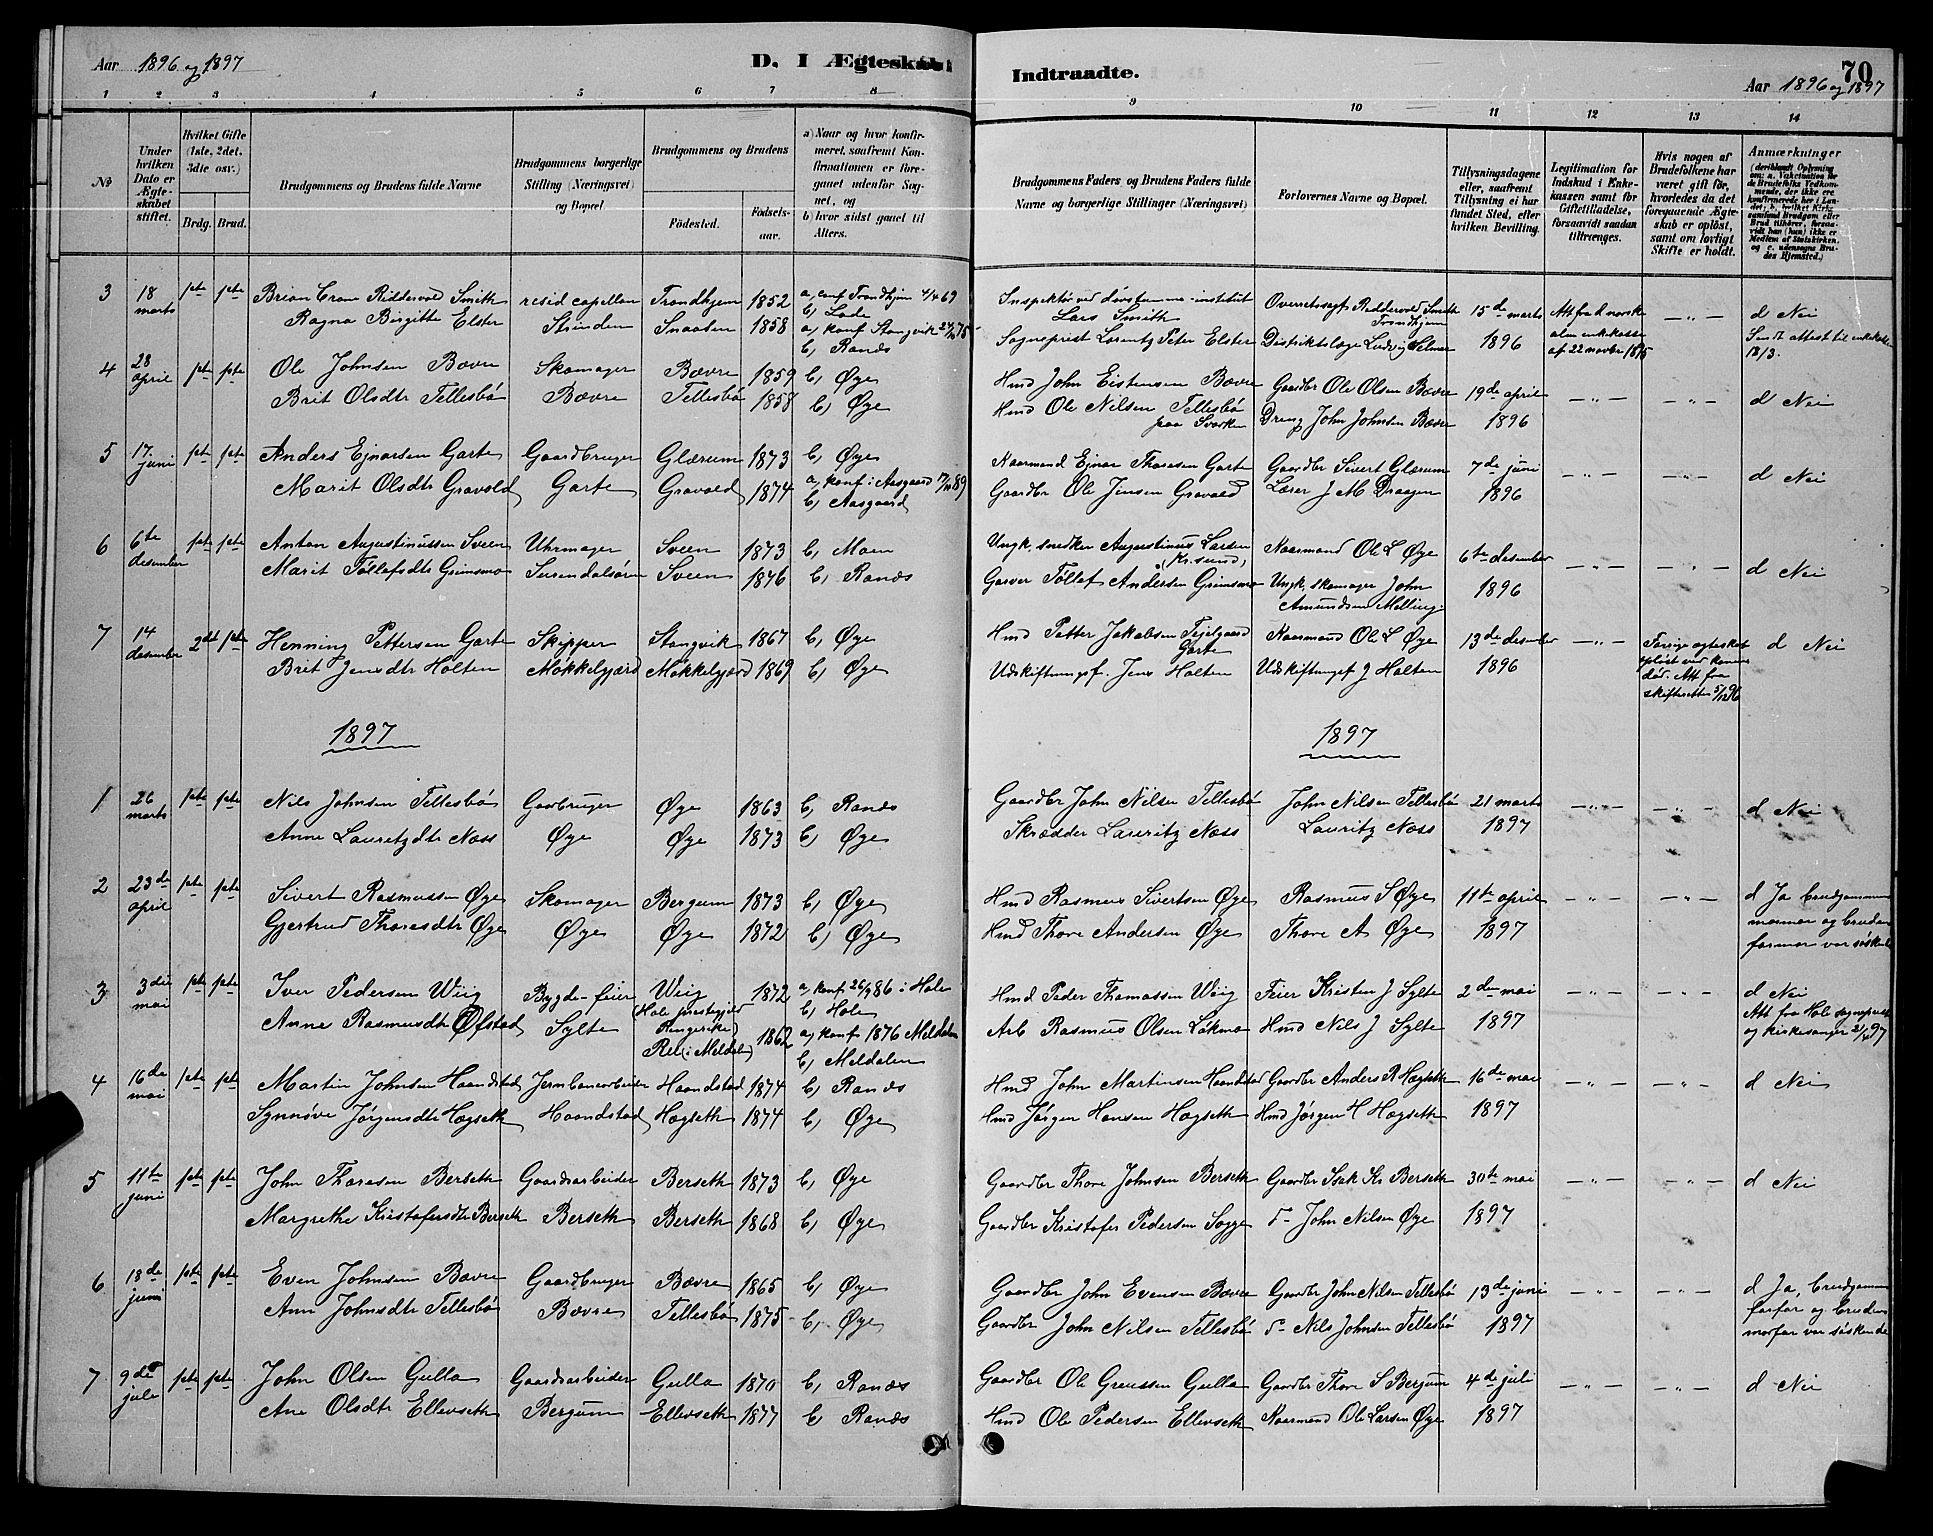 Aar 1896 og 1897
D. I Ægteskab
Indtraadte.
70
Aar 1896 og 1897
1 2 3 4 5 6 7 8
9 10 11 12 13 14
No
Under hvilken Dato er Ægteskabet stiftet.
Hvilket Gifte (1ste, 2det, 3dte osv.)
Brdg. Brud.
Brudgommens og Brudens fulde Navne
Brudgommens borgerlige Stilling (Næringsvei) og Bopæl.
Brudgommens og Brudens
Födested. Födselsaar.
a) Naar og hvor konfirmeret, saafremt Konfirmationen er foregaaet udenför Sognet, og
b) hvor sidst gaaet til Alters.
Brudgommens Faders og Brudens Faders fulde Navne og borgerlige Stillinger (Næringsvei)
Forlovernes Navne og Bopæl.
Tillysningsdagene eller, saafremt Tillysning ei har fundet Sted, efter hvilken Bevilling.
Legitimation for Indskud i Enkekassen samt för Giftetilladelse, forsaavidt saadan tiltrænges.
Hvis nogen af Brudefolkene har været gift för, hvorledes da det foregaaende Ægteskab er oplöst, samt om lovligt Skifte er holdt.
Anmærkninger
3 18 marts 1ste 1ste Brian Crone Riddervold Smith resid capellan Trondhjem 1852 a, conf Trondhjem 4/4 69 b, Lade
Inspektør ved døvstumme-institut Lars Smith Overretssagf Riddervold Smith Trondhjem 15de marts Att fra d norske d Nei
Ragna Birgitte Elster Strinden Snaasen 1858 a, konf Stangvik b, Ranes
Sogneprest Lorentz Peter Elster Distriktslæge Ludvig Selmer 1896 alm enkekasse af 22 novbr 1895 Sendt attest til enkekassen
4 28 april 1ste 1ste Ole Johnsen Bævre Skomager Bævre 1859 b, Øye
Hmd John Eistensen Bævre Gaardbr Ole Olsen Bævre 19de april d Nei
Brit Olsdtr Tellesbø Bævre Tellesbø 1858 b, Øye
Hmd Ole Nilsen Tellesbø paa Svorken Dreng John Johnsen Bævre 1896
5 17. juni 1ste 1ste Anders Ejnarsen Garte Gaardbruger Glærum 1873 b, Øye
Kaarmand Ejnar Thoresen Garte Gaardbr Sivert Glærum 7de juni d Nei
Marit Olsdtr Gravold Garte Gravold 1874 a, konf i Aasgaard b, Aasgaard
Gaardbr Ole Jensen Gravold Lærer J M Draagen 1896
6 6te desember 1ste 1ste Anton Augustinussen Sveen Uhrmager Sveen 1873 b, Moen
Ungk. snedker Augustinus Larsen (Kr.sund) Kaarmand Ole L Øye 6te desember d Nei
Marit Tøllefsdtr Grimsmo Surendalsøren Sveen 1876 b, Ranes
Garver Tøllef Andersen Grimsmo Ungk, skomager John Amundsen Melling 1896
7 14 desember 2det 1ste Henning Pettersen Garte Skipper Stangvik 1867 b, Øye
Hmd Petter Jakobsen Garte Kaarmand Ole L Øye 13de desember Forrige ægteskab opløst ved konens død. Att fra skifteretten 5/12 96 d Nei
Brit Jensdtr Holten Møkkelgjærd Møkkelgjærd 1869 b, Øye
Udskiftningsf. Jens Holten Udskiftningsf J Holten 1896
1897
1897
1 26 marts 1ste 1ste Nils Johnsen Tellesbø Gaarbruger Øye 1863 b, Ranes
Gaardbr John Nilsen Tellesbø John Nilsen Tellesbø 21 marts d Nei
Anne Lauritzdtr Næss Øye Øye 1873 b, Øye
Skrædder Lauritz Næss Lauritz Næss 1897
2 23de april 1ste 1ste Sivert Rasmussen Øye Skomager Bergum 1873 b, Øye
Hmd Rasmus Sivertsen Øye Rasmus S Øye 11te april d Ja brudgommens mormor og brudens farmor var søskende
Gjertrud Thoresdtr Øye Øye Øye 1872 b, Øye
Hmd Thore Andersen Øye Thore A Øye 1897
3 3die mai 1ste 1ste Iver Pedersen Wiig Bygde-feier Wiig (Hole præstegjeld Ringerike) 1872 a, konf 26/9 86 i Hole b, Hole
Hmd Peder Thomassen Wiig Feier Kristen J Sylte 2den mai d Nei
Anne Rasmusdtr Øfstad Sylte (i Meldalen) 1862 a, konf 1876 Meldalen b, Meldalen
Arb Rasmus Olsen Løkmo Hmd Nils J Sylte 1897 Att fra Hole sogneprest og kirkesanger 2/4 97
4 16de mai 1ste 1ste Martin Johnsen Haandstad Jernbanearbeider Haandstad 1874 b, Ranes
Hmd John Martinsen Haandstad Gaardbr Anders R Hægseth 16de mai d Nei
Synnøve Jørgensdtr Hægseth Haandstad Hægseth 1874 b, Øye
Hmd Jørgen Hansen Hægseth Hmd Jørgen H Hægseth 1897
5 11te juni 1ste 1ste John Thoresen Berseth Gaardsarbeider Berseth 1873 b, Øye
Gaardbr Thore Johnsen Berseth Gaardbr Isak Kr Berseth 30te mai d Nei
Margrethe Kristofersdtr Berseth Berseth Berseth 1868 b, Øye
Gaardbr Kristofer Pedersen Sogge d- John Nilsen Øye 1897
6 18de juni 1ste 1ste Even Johnsen Bævre Gaardbruger Bævre 1865 b, Øye
Gaardbr John Evensen Bævre Gaardbr John Nilsen Tellesbø 13de juni d Ja, brudgommens farfar og brudens morfar var søskende
Ann Johnsdtr Tellesbø Bævre Tellesbø 1875 b, Øye
Gaardbr John Nilsen Tellesbø d- Nils Johnsen Tellesbø 1897
7 9de juli 1ste 1ste John Olsen Gulla Gaardsarbeider Gulla 1870 b, Ranes
Gaardbr Ole Greussen Gulla Gaardbr Thore S Bergum 4de juli d Nei
Ane Olsdtr Ellevseth Bergum Ellevseth 1877 b, Ranes
Hmd Ole Pedersen Ellevseth Kaarmand Ole Larsen Øye 1897